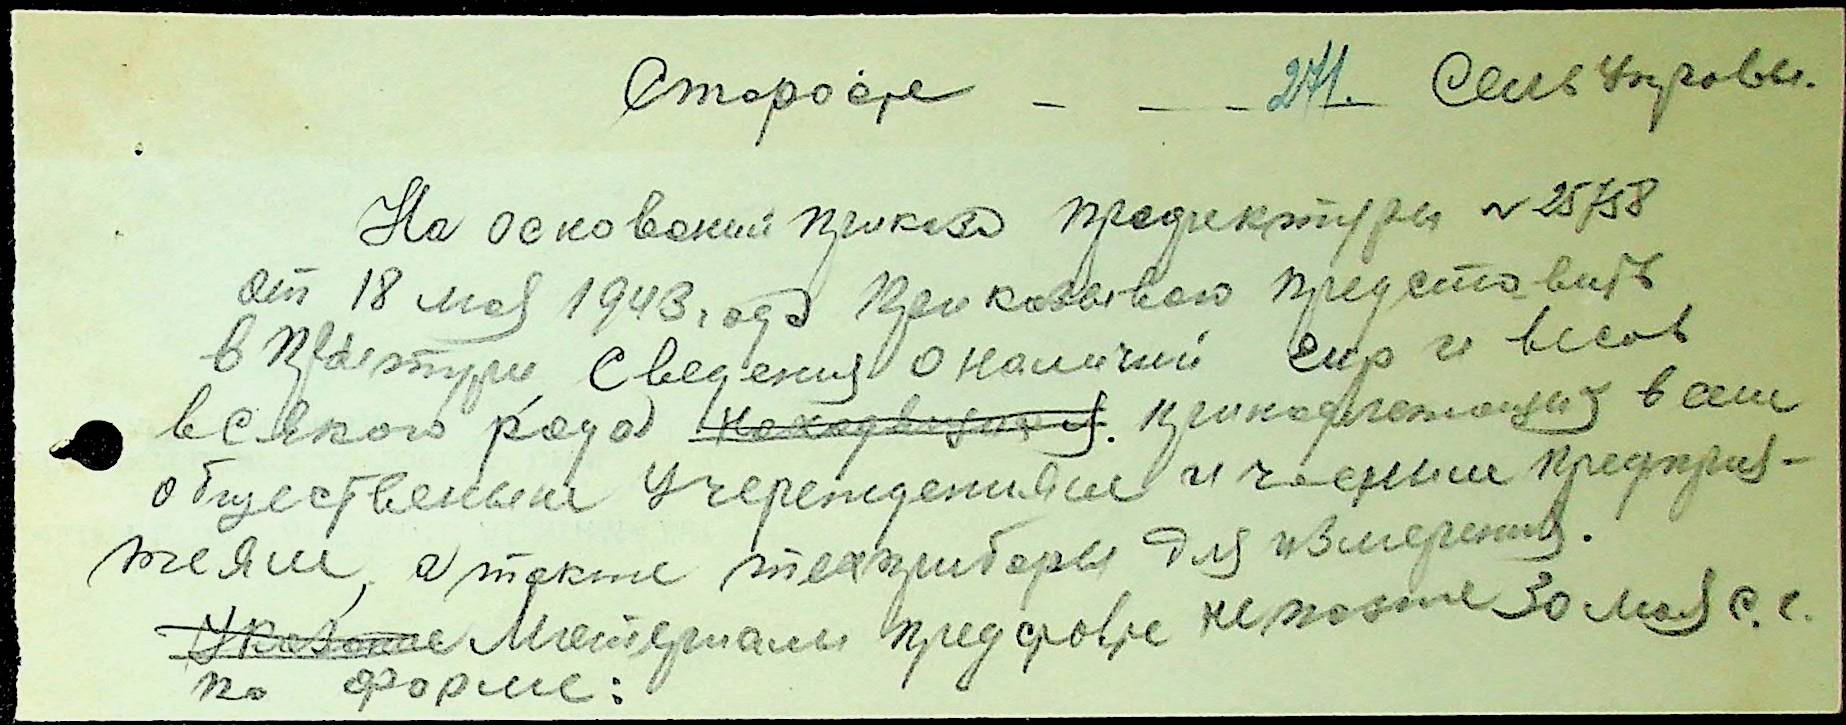 Старосте - - - 271. Сель Управы.
На основании приказа Предиктуры № 25758
от 18 мая 1943 года Приказываю представить
в Претуру сведения о наличии гир и весов
всякого рода находящихся. принадлежащих всем
общественым учереждениям и частным предприя-
тиям, а также техприборы для измерения.
Указаные Материалы представте не позже 30 мая с.г.
по форме: